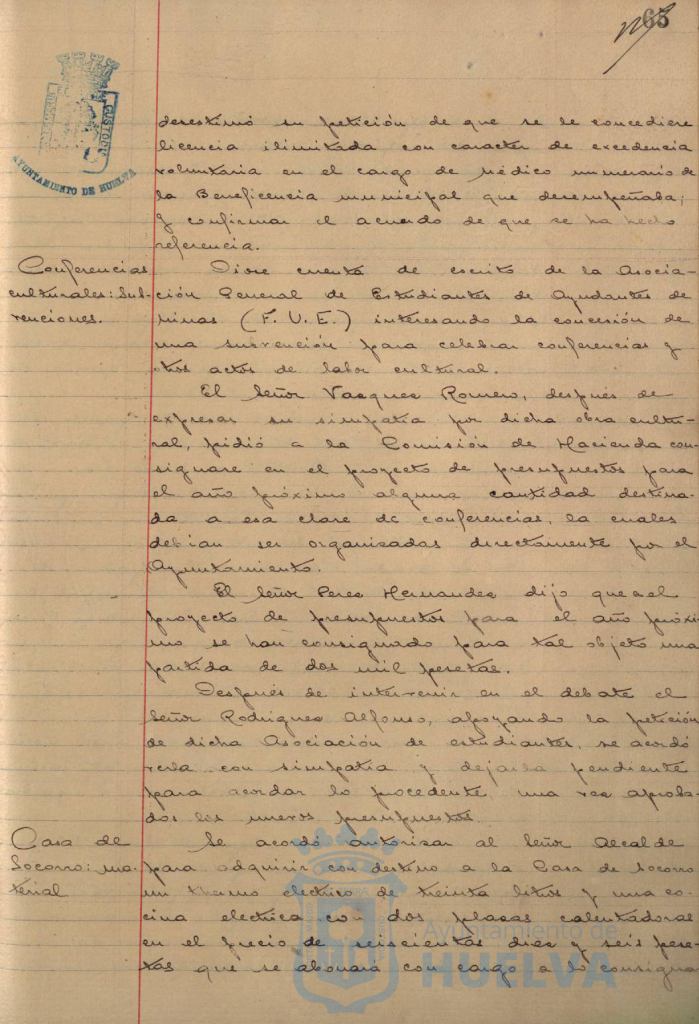 65
CUSTODY
AYUNTAMIENTO DE HUELVA
desestimó su petición de que se le concediere
licencia ilimitada con caracter de excedencia
voluntaria en el cargo de Médico numerario de
la Beneficencia municipal que desempeñaba;
y confirmar el acuerdo de que se ha hecho
referencia.
Conferencias
culturales: Sub-
venciones.
Diose cuenta de escrito de la Asocia-
ción General de Estudiantes de Ayudantes de
minas (F. U. E.) interesando la concesión de
una subvención para celebrar conferencias y
otros actos de labor cultural.
El Señor Vazquez Romero, después de
expresar su simpatía por dicha obra cultu-
ral, pidió a la Comisión de Hacienda con-
signase en el proyecto de presupuestos para
el año próximo alguna cantidad destina-
da a esa clase de conferencias, la cuales
debian ser organizadas directamente por el
Ayuntamiento.
El Señor Perez Hernandez dijo que en el
proyecto de presupuestos para el año próxi
mo se han consignado para tal objeto una
partida de dos mil pesetas.
Después de intervenir en el debate el
Señor Rodriguez Alfonso, apoyando la petición
de dicha Asociación de estudiantes, se acordó
verla con simpatía y dejarla pendiente
para acordar lo procedente, una vez aproba-
dos los nuevos presupuestos.
Casa de
Socorro: ma-
terial
Se acordó autorizar al Señor Alcalde
para adquirir con destino a la Casa de Socorro
un thermo electrico de treinta litros y una co-
cina electrica con dos placas calentadoras
en el precio de seiscientas diez y seis pese-
tas que se abonará con cargo a lo consigna
Ayuntamiento de
HUELVA